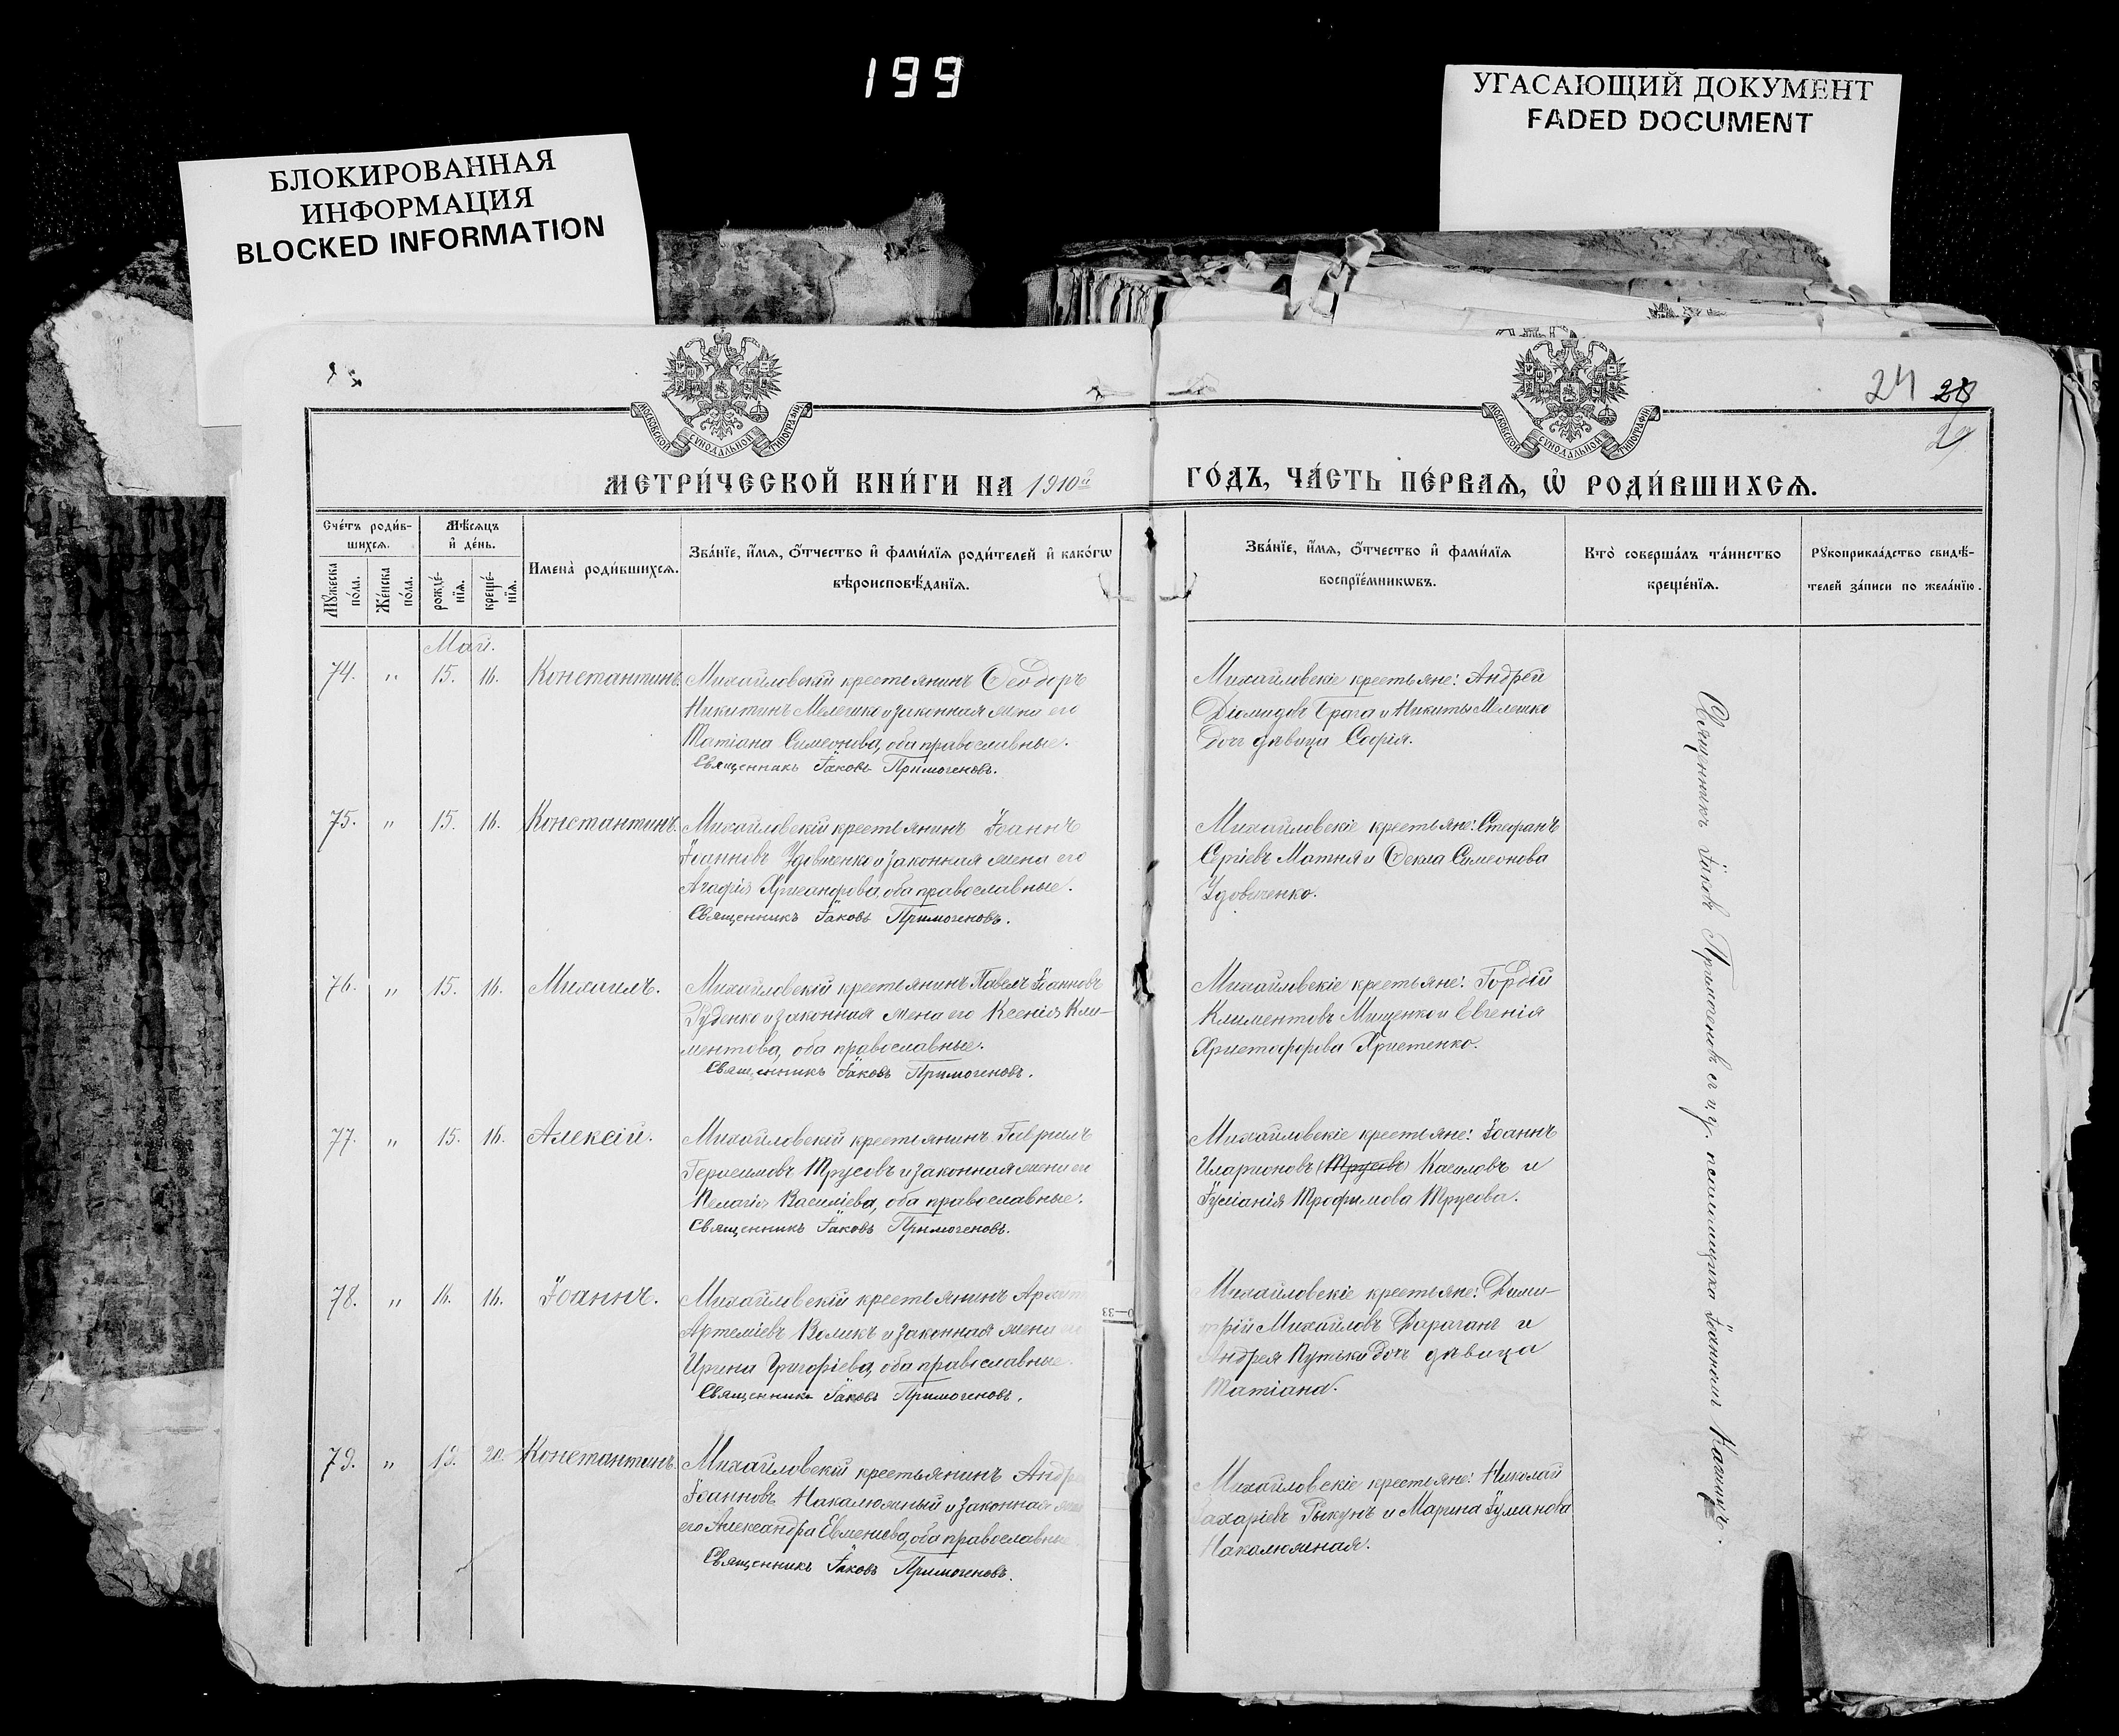 199
УГАСАЮЩИЙ ДОКУМЕНТ
FADED DOCUMENT
БЛОКИРОВАННАЯ
ИНФОРМАЦИЯ
BLOCKED INFORMATION
МОСКОВСКОЙ СѴНОДАЛЬНОЙ ТИПОГРАФІИ
МОСКОВСКОЙ СѴНОДАЛЬНОЙ ТИПОГРАФІИ
24 28
МЕТРИ́ЧЕСКОЙ КНИ́ГИ НА 1910й ГО́ДЪ, ЧА́СТЬ ПЕ́РВАѦ, Ѡ҆ РОДИ́ВШИХСѦ.
Сче́тъ роди́в-
шихсѧ.
Мѣ́сѧцъ
и҆ де́нь.
Мꙋ́жеска по́ла.
Же́нска по́ла.
рожде́-нїѧ.
креще́-нїѧ.
Имена̀ роди́вшихсѧ.
Зва́нїе, и҆́мѧ, ѻ҆́тчество и҆ фами́лїѧ роди́телей и҆ како́гѡ
вѣроисповѣ́данїѧ.
Зва́нїе, и҆́мѧ, ѻ҆́тчество и҆ фами́лїѧ
воспрїе́мникѡвъ.
Кто̀ соверша́лъ та́инство
креще́нїѧ.
Рꙋкоприкла́дство свидѣ́-
телей за́писи по жела́нїю.
Май.
74. " 15. 16. Константинъ. Михайловскій крестьянинъ Ѳеодоръ
Никитинъ Мелешко и законная жена его
Татіана Симеонова, оба православные.
Священникъ Іаковъ Примогеновъ.
Михайловскіе крестьяне: Андрей
Діомидовъ Брага и Никиты Мелешко
дочь дѣвица Софія.
75. " 15. 16. Константинъ. Михайловскій крестьянинъ Іоаннъ
Іоанновъ Удовиченко и законная жена его
Агафія Хрисанфова, оба православные.
Священникъ Іаковъ Примогеновъ.
Михайловскіе крестьяне: Стефанъ
Сергіевъ Матня и Ѳекла Симеонова
Удовиченко.
76. " 15. 16. Михаилъ. Михайловскій крестьянинъ Павелъ Іоанновъ
Руденко и законная жена его Ксенія Кли-
ментова, оба православные.
Священникъ Іаковъ Примогеновъ.
Михайловскіе крестьяне: Гордій
Климентовъ Мищенко и Евгенія
Христофорова Христенко.
77. " 15. 16. Алексій. Михайловскій крестьянинъ Гавріилъ
Герасимовъ Трусовъ и законная жена его
Пелагія Василіева, оба православные.
Священникъ Іаковъ Примогеновъ.
Михайловскіе крестьяне: Іоаннъ
Иларионовъ (Трусовъ) и
Іуліанія Трофимова Трусова.
78. " 16. 16. Іоаннъ. Михайловскій крестьянинъ
Артеміевъ Воликъ и законная жена его
Ирина Григоріева, оба православные.
Священникъ Іаковъ Примогеновъ.
Михайловскіе крестьяне: Дими-
трій Михайловъ Дараганъ и
Андрея Путьки дочь дѣвица
Татіана.
79. " 20. Константинъ. Михайловскій крестьянинъ Андрей
Іоанновъ и законная жена
его Александра Евменіева, оба православные
Священникъ Іаковъ Примогеновъ.
Михайловскіе крестьяне: Николай
Захаріевъ Рыкунъ и Марина
Священникъ Іаковъ Примогеновъ съ и. д. псаломщика Іоанномъ